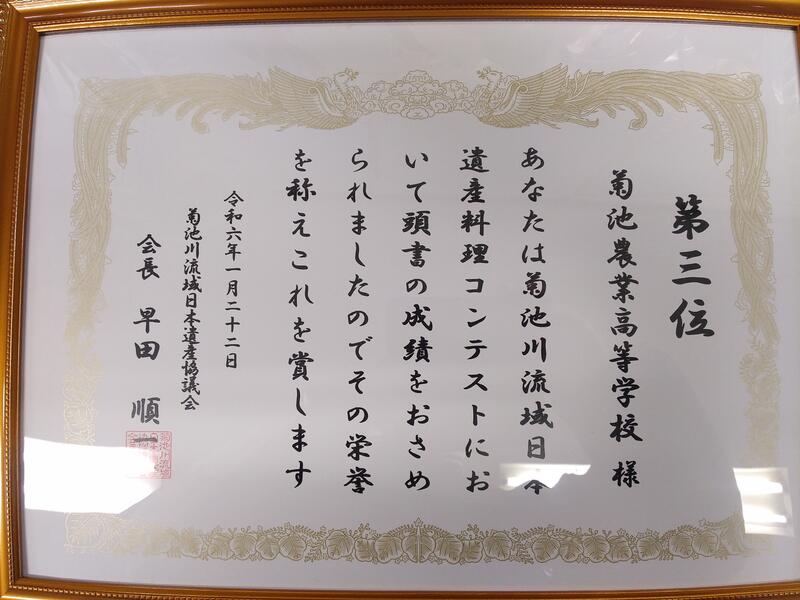 第三位
菊池農業高等学校 様
あなたは菊池川流域日本
遺産料理コンテストにお
いて頭書の成績をおさめ
られましたのでその栄誉
を称えこれを賞します
令和六年一月二十二日
菊池川流域日本遺産協議会
会長 早田 順一